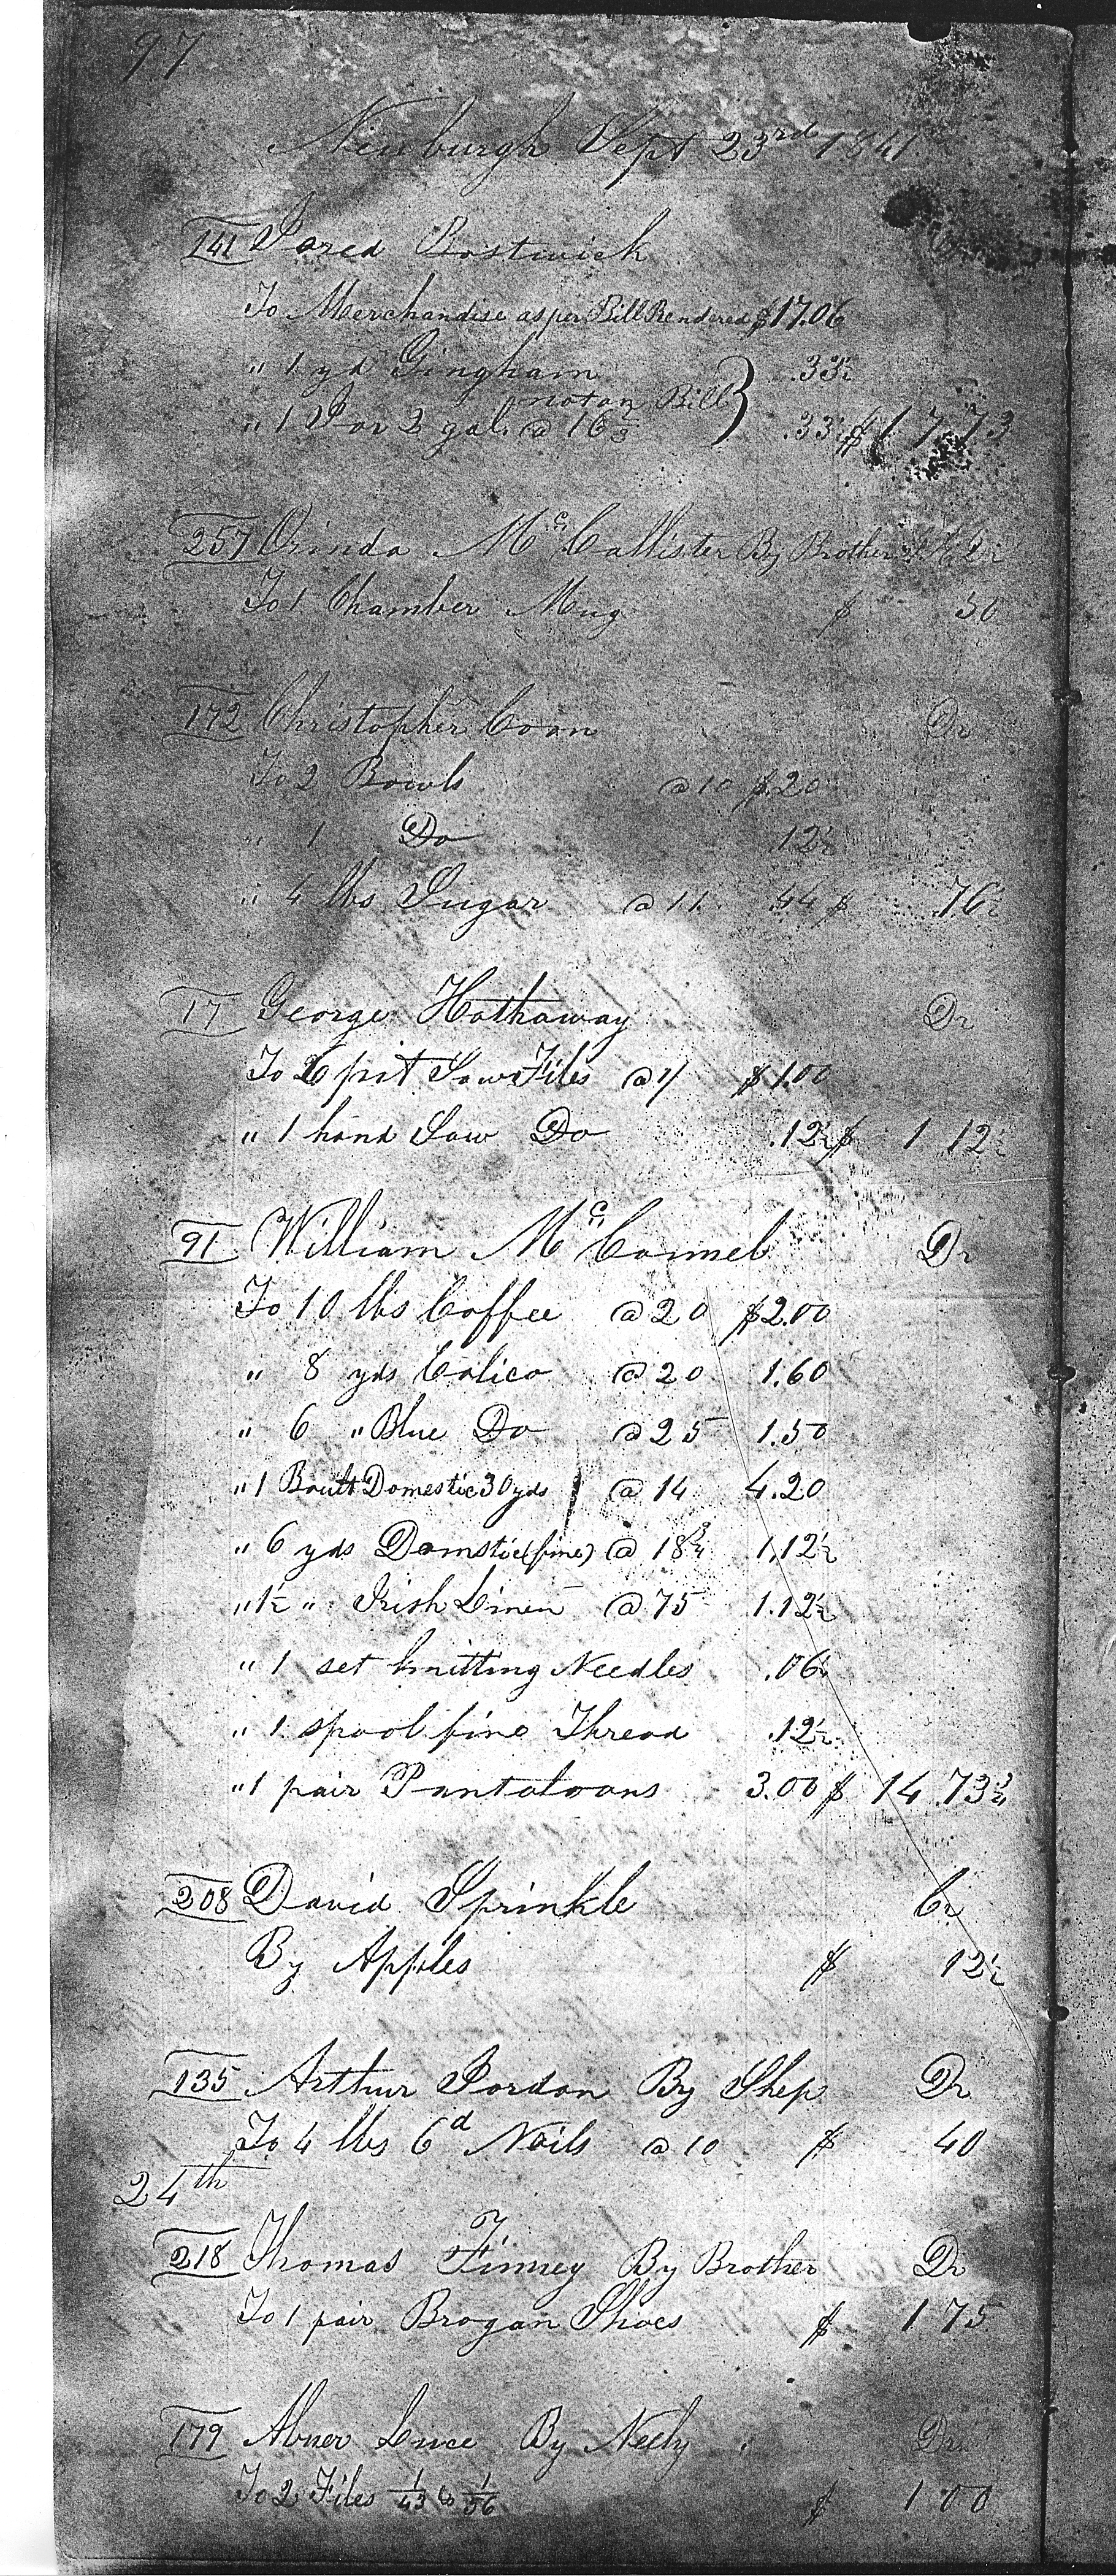 97
Newburgh Sept 23rd 1841
141 Jared Bostwick
To Merchandise as per Bill Rendered $17.06
" 1 yd Gingham .33½
not on Bill
" 1 Jar 2 gal. @ 16⅔ .33 $17.73
257 Orinda McCallister By Brother
To 1 Chamber Mug $ 50
172 Christopher Coon Dr
To 2 Bowls @ 10 $.20
" 1 Do .12½
" 4 lbs Sugar @ 11 .44 $ .76½
17 George Hathaway Dr
To 6 pit Saw Files @ 1/ $1.00
" 1 hand Saw Do .12½ $ 1 12½
91 William McConnel Dr
To 10 lbs Coffee @ 20 $2.00
" 8 yds Calico @ 20 1.60
" 6 " Blue Do @ 25 1.50
" 1 Boult Domestic 30 yds @ 14 4.20
" 6 yds Domstic (fine) @ 18¾ 1.12½
" 1½ " Irish Linen @ 75 1.12½
" 1 set knitting Needles .06¼
" 1 spool fine Thread .12½
" 1 pair Pantaloons 3.00 $ 14.73¾
208 David Sprinkle Cr
By Apples $ 12½
135 Arthur Jordon By Shep Dr
To 4 lbs 6d Nails @ 10 $ 40
24th
218 Thomas Finney By Brother Dr
To 1 pair Brogan Shoes $ 1 75
179 Abner Luce By Neely Dr
To 2 Files $ 1 00